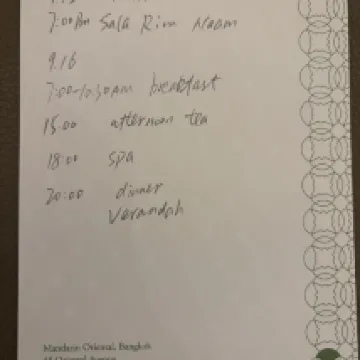 7:00pm Sala Rim Naam
9.16
7:00-10:30AM breakfast
15:00 afternoon tea
18:00 spa
20:00 dinner
Verandah
Mandarin Oriental, Bangkok